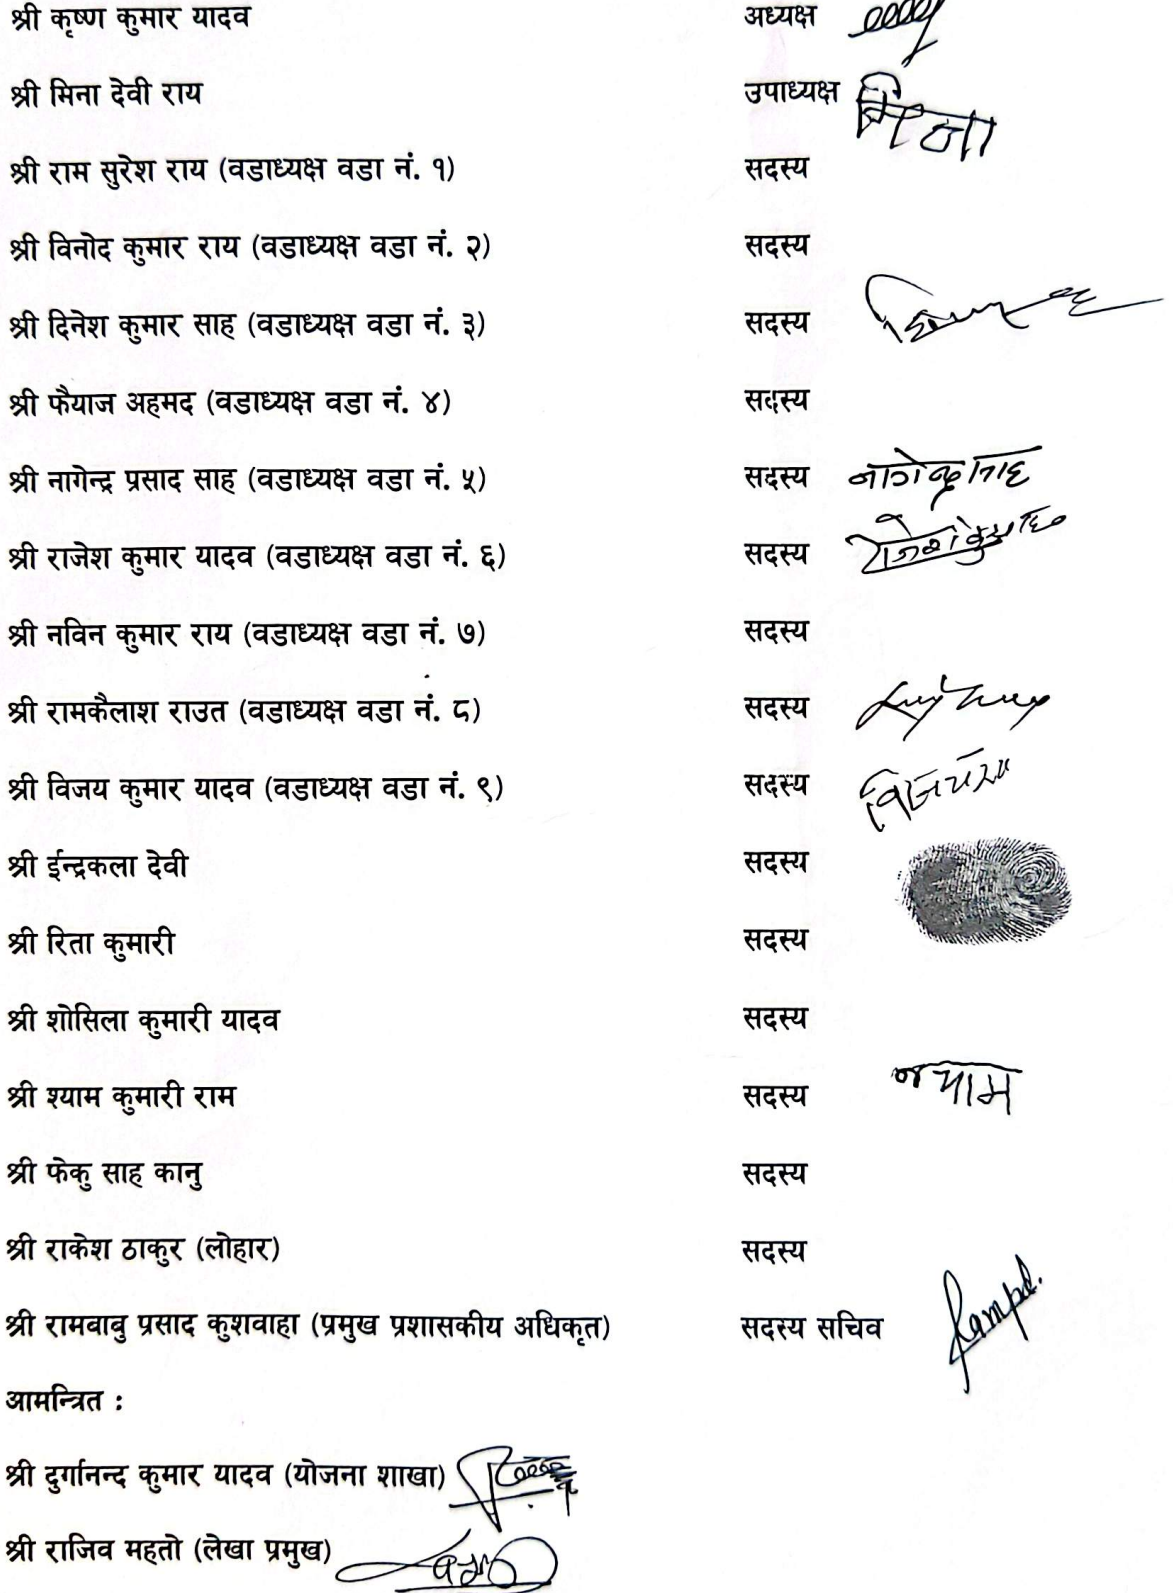 श्री कृष्ण कुमार यादव अध्यक्ष
श्री मिना देवी राय उपाध्यक्ष मिना
श्री राम सुरेश राय (वडाध्यक्ष वडा नं. १) सदस्य
श्री विनोद कुमार राय (वडाध्यक्ष वडा नं. २) सदस्य
श्री दिनेश कुमार साह (वडाध्यक्ष वडा नं. ३) सदस्य
श्री फैयाज अहमद (वडाध्यक्ष वडा नं. ४) सदस्य
श्री नागेन्द्र प्रसाद साह (वडाध्यक्ष वडा नं. ५) सदस्य
श्री राजेश कुमार यादव (वडाध्यक्ष वडा नं. ६) सदस्य
श्री नविन कुमार राय (वडाध्यक्ष वडा नं. ७) सदस्य
श्री रामकैलाश राउत (वडाध्यक्ष वडा नं. ८) सदस्य
श्री विजय कुमार यादव (वडाध्यक्ष वडा नं. ९) सदस्य
श्री ईन्द्रकला देवी सदस्य
श्री रिता कुमारी सदस्य
श्री शोसिला कुमारी यादव सदस्य
श्री श्याम कुमारी राम सदस्य
श्री फेकु साह कानु सदस्य
श्री राकेश ठाकुर (लोहार) सदस्य
श्री रामबाबु प्रसाद कुशवाहा (प्रमुख प्रशासकीय अधिकृत) सदस्य सचिव
आमन्त्रित :
श्री दुर्गानन्द कुमार यादव (योजना शाखा)
श्री राजिव महतो (लेखा प्रमुख)